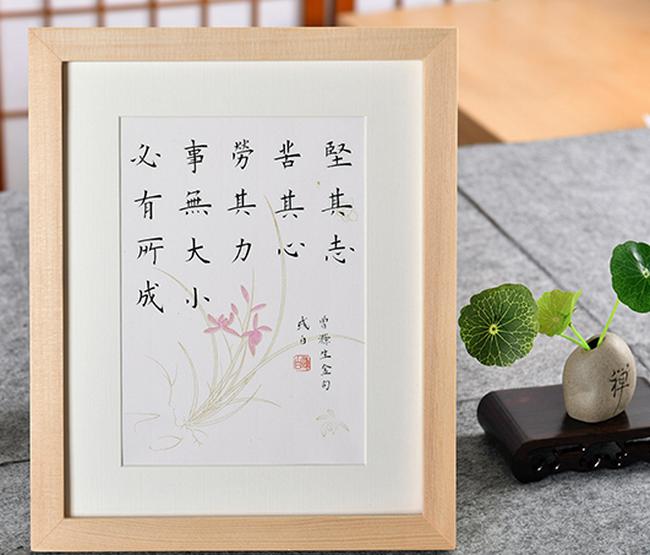 堅其志
苦其心
勞其力
事無大小
必有所成
曾滌生金句
禪